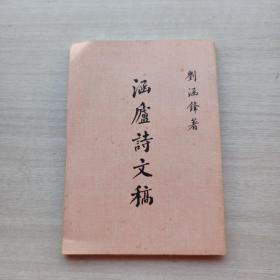 劉涵鋒著
涵廬詩文稿